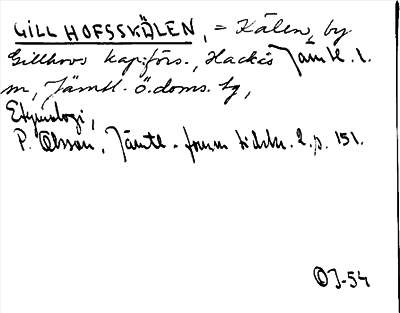 GILLHOFSSKÄLEN, = Kälen, by
Gillhovs kap:förs., Hackås Jämtl. l.
m, Jämtl. Ö. doms. tg,
Etymologi,
P. Olsson, Jämtl. fornm tidskr. 2, p. 151.
OJ-54